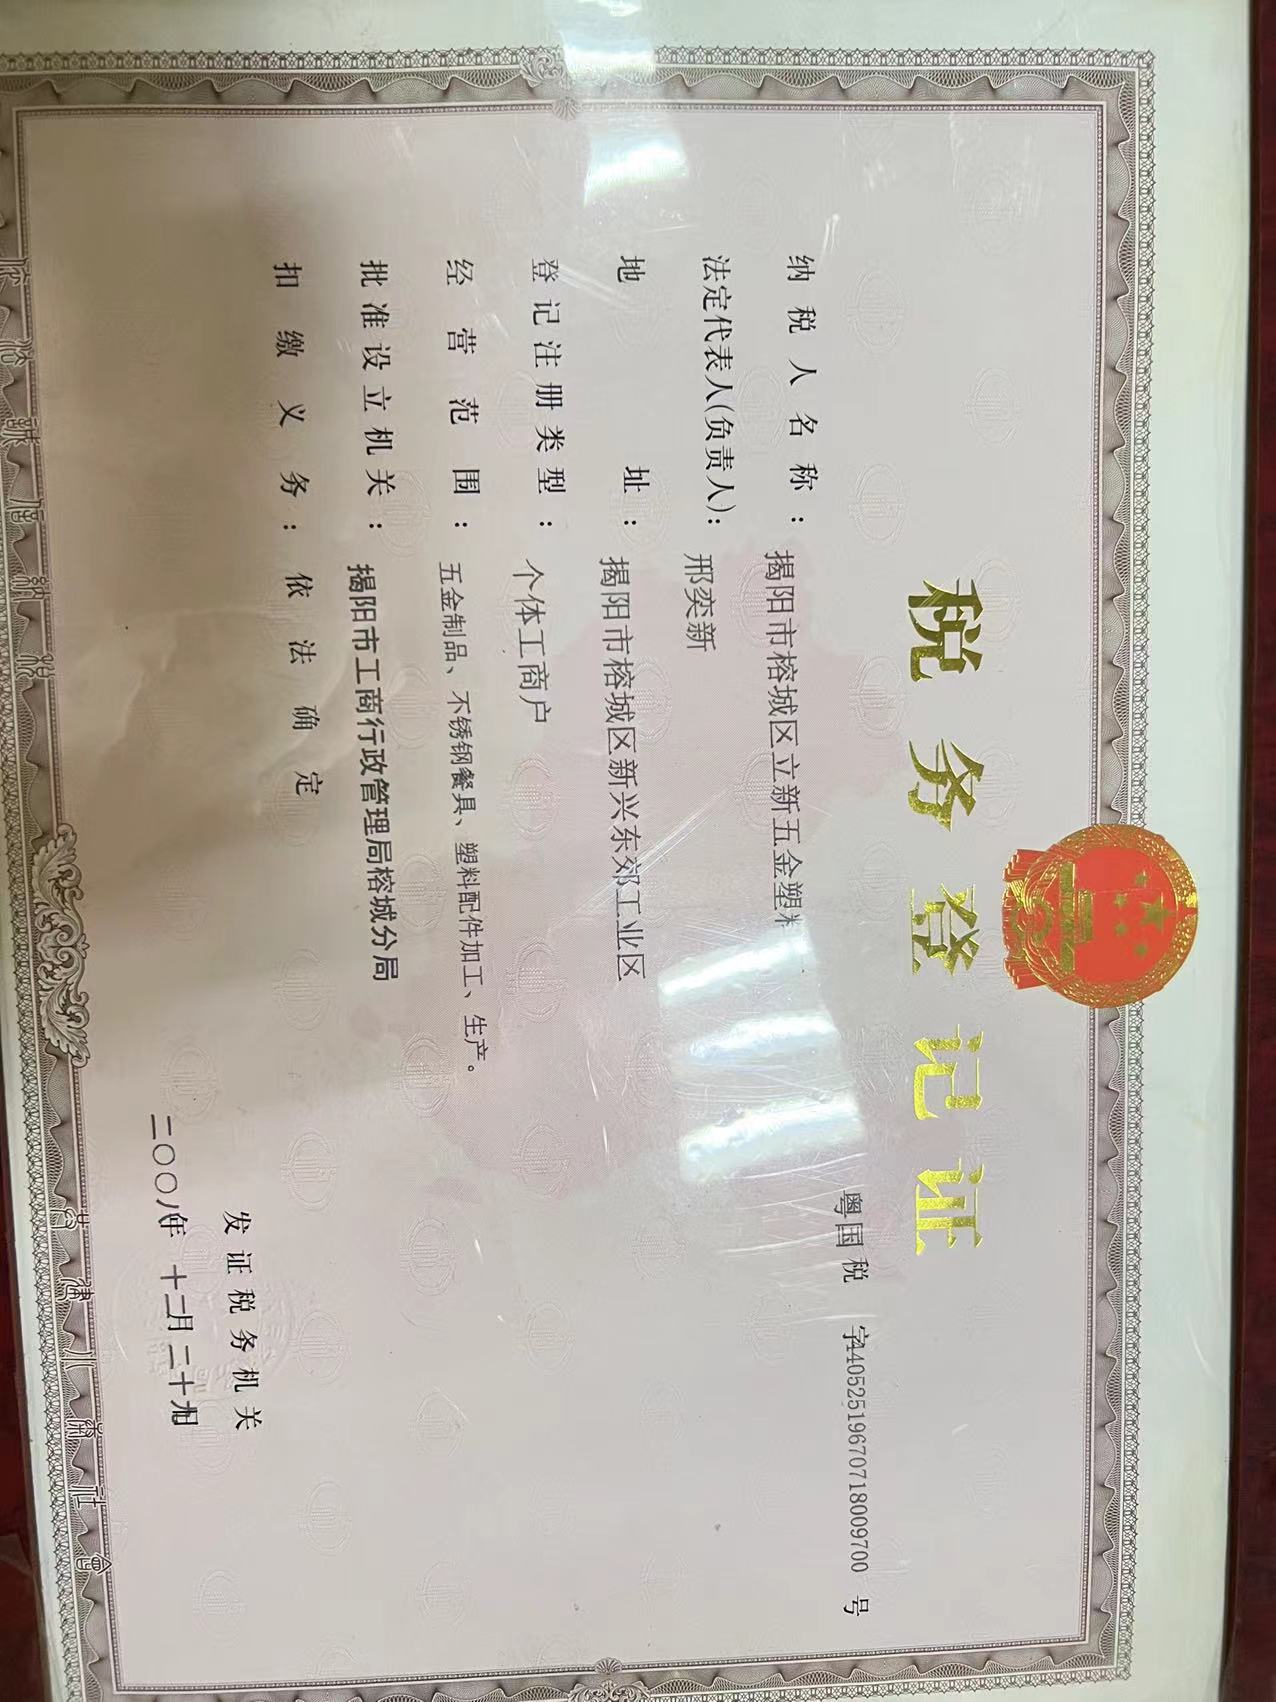 税务登记证
粤国税 字44052519670718009700 号
纳税人名称：揭阳市榕城区立新五金塑料
法定代表人(负责人)：邢奕新
地址：揭阳市榕城区新兴东郊工业区
登记注册类型：个体工商户
经营范围：五金制品、不锈钢餐具、塑料配件加工、生产。
批准设立机关：揭阳市工商行政管理局榕城分局
扣缴义务：依法确定
发证税务机关
二〇〇八年 十二月 二十九日